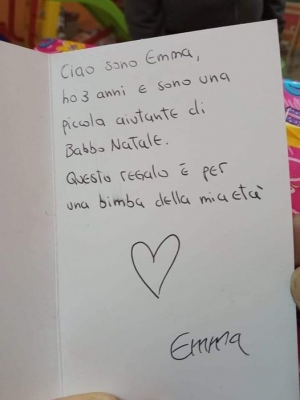 Ciao sono Emma,
ho 3 anni e sono una
piccola aiutante di
Babbo Natale.
Questo regalo è per
una bimba della mia età
Emma